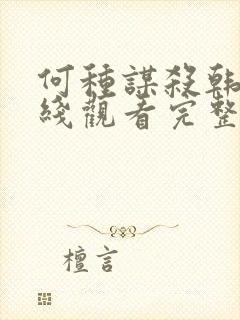 何種謀殺韓
綫觀看完整
檀言